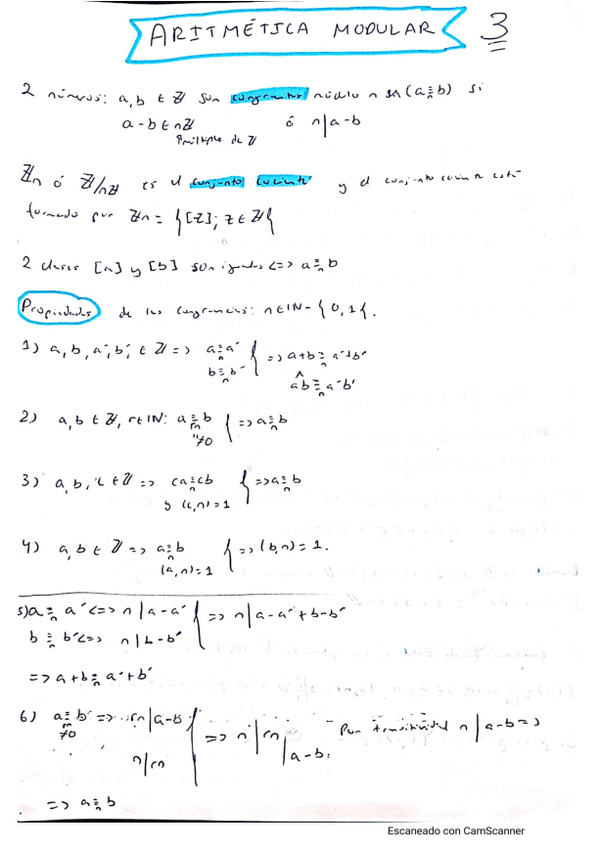 ARITMÉTICA MODULAR 3
2 números: a, b ∈ ℤ son congruentes módulo n (a ≡ₙ b) si
a - b ∈ nℤ ó n | a - b
múltiplo de ℤ
ℤn ó ℤ/nℤ es el conjunto cociente y el conjunto cociente está
formado por ℤn = {[z]; z ∈ ℤ}
2 clases [a] y [b] son iguales <=> a ≡ₙ b
Propiedades de las congruencias: n ∈ IN - {0, 1}.
1) a, b, a', b' ∈ ℤ => a ≡ₙ a' } => a + b ≡ₙ a' + b'
b ≡ₙ b' ^ ab ≡ₙ a'b'
2) a, b ∈ ℤ, r ∈ IN: a ≡ᵣₙ b } => a ≡ₙ b
≠0
3) a, b, c ∈ ℤ => ca ≡ₙ cb } => a ≡ₙ b
y (c, n) = 1
4) a, b ∈ ℤ => a ≡ₙ b } => (b, n) = 1.
(a, n) = 1
5) a ≡ₙ a' <=> n | a - a' } => n | a - a' + b - b'
b ≡ₙ b' <=> n | b - b'
=> a + b ≡ₙ a' + b'
6) a ≡ᵣₙ b => rn | a - b } => n | rn | a - b. Por transitividad n | a - b =>
≠0 n | rn
=> a ≡ₙ b
Escaneado con CamScanner